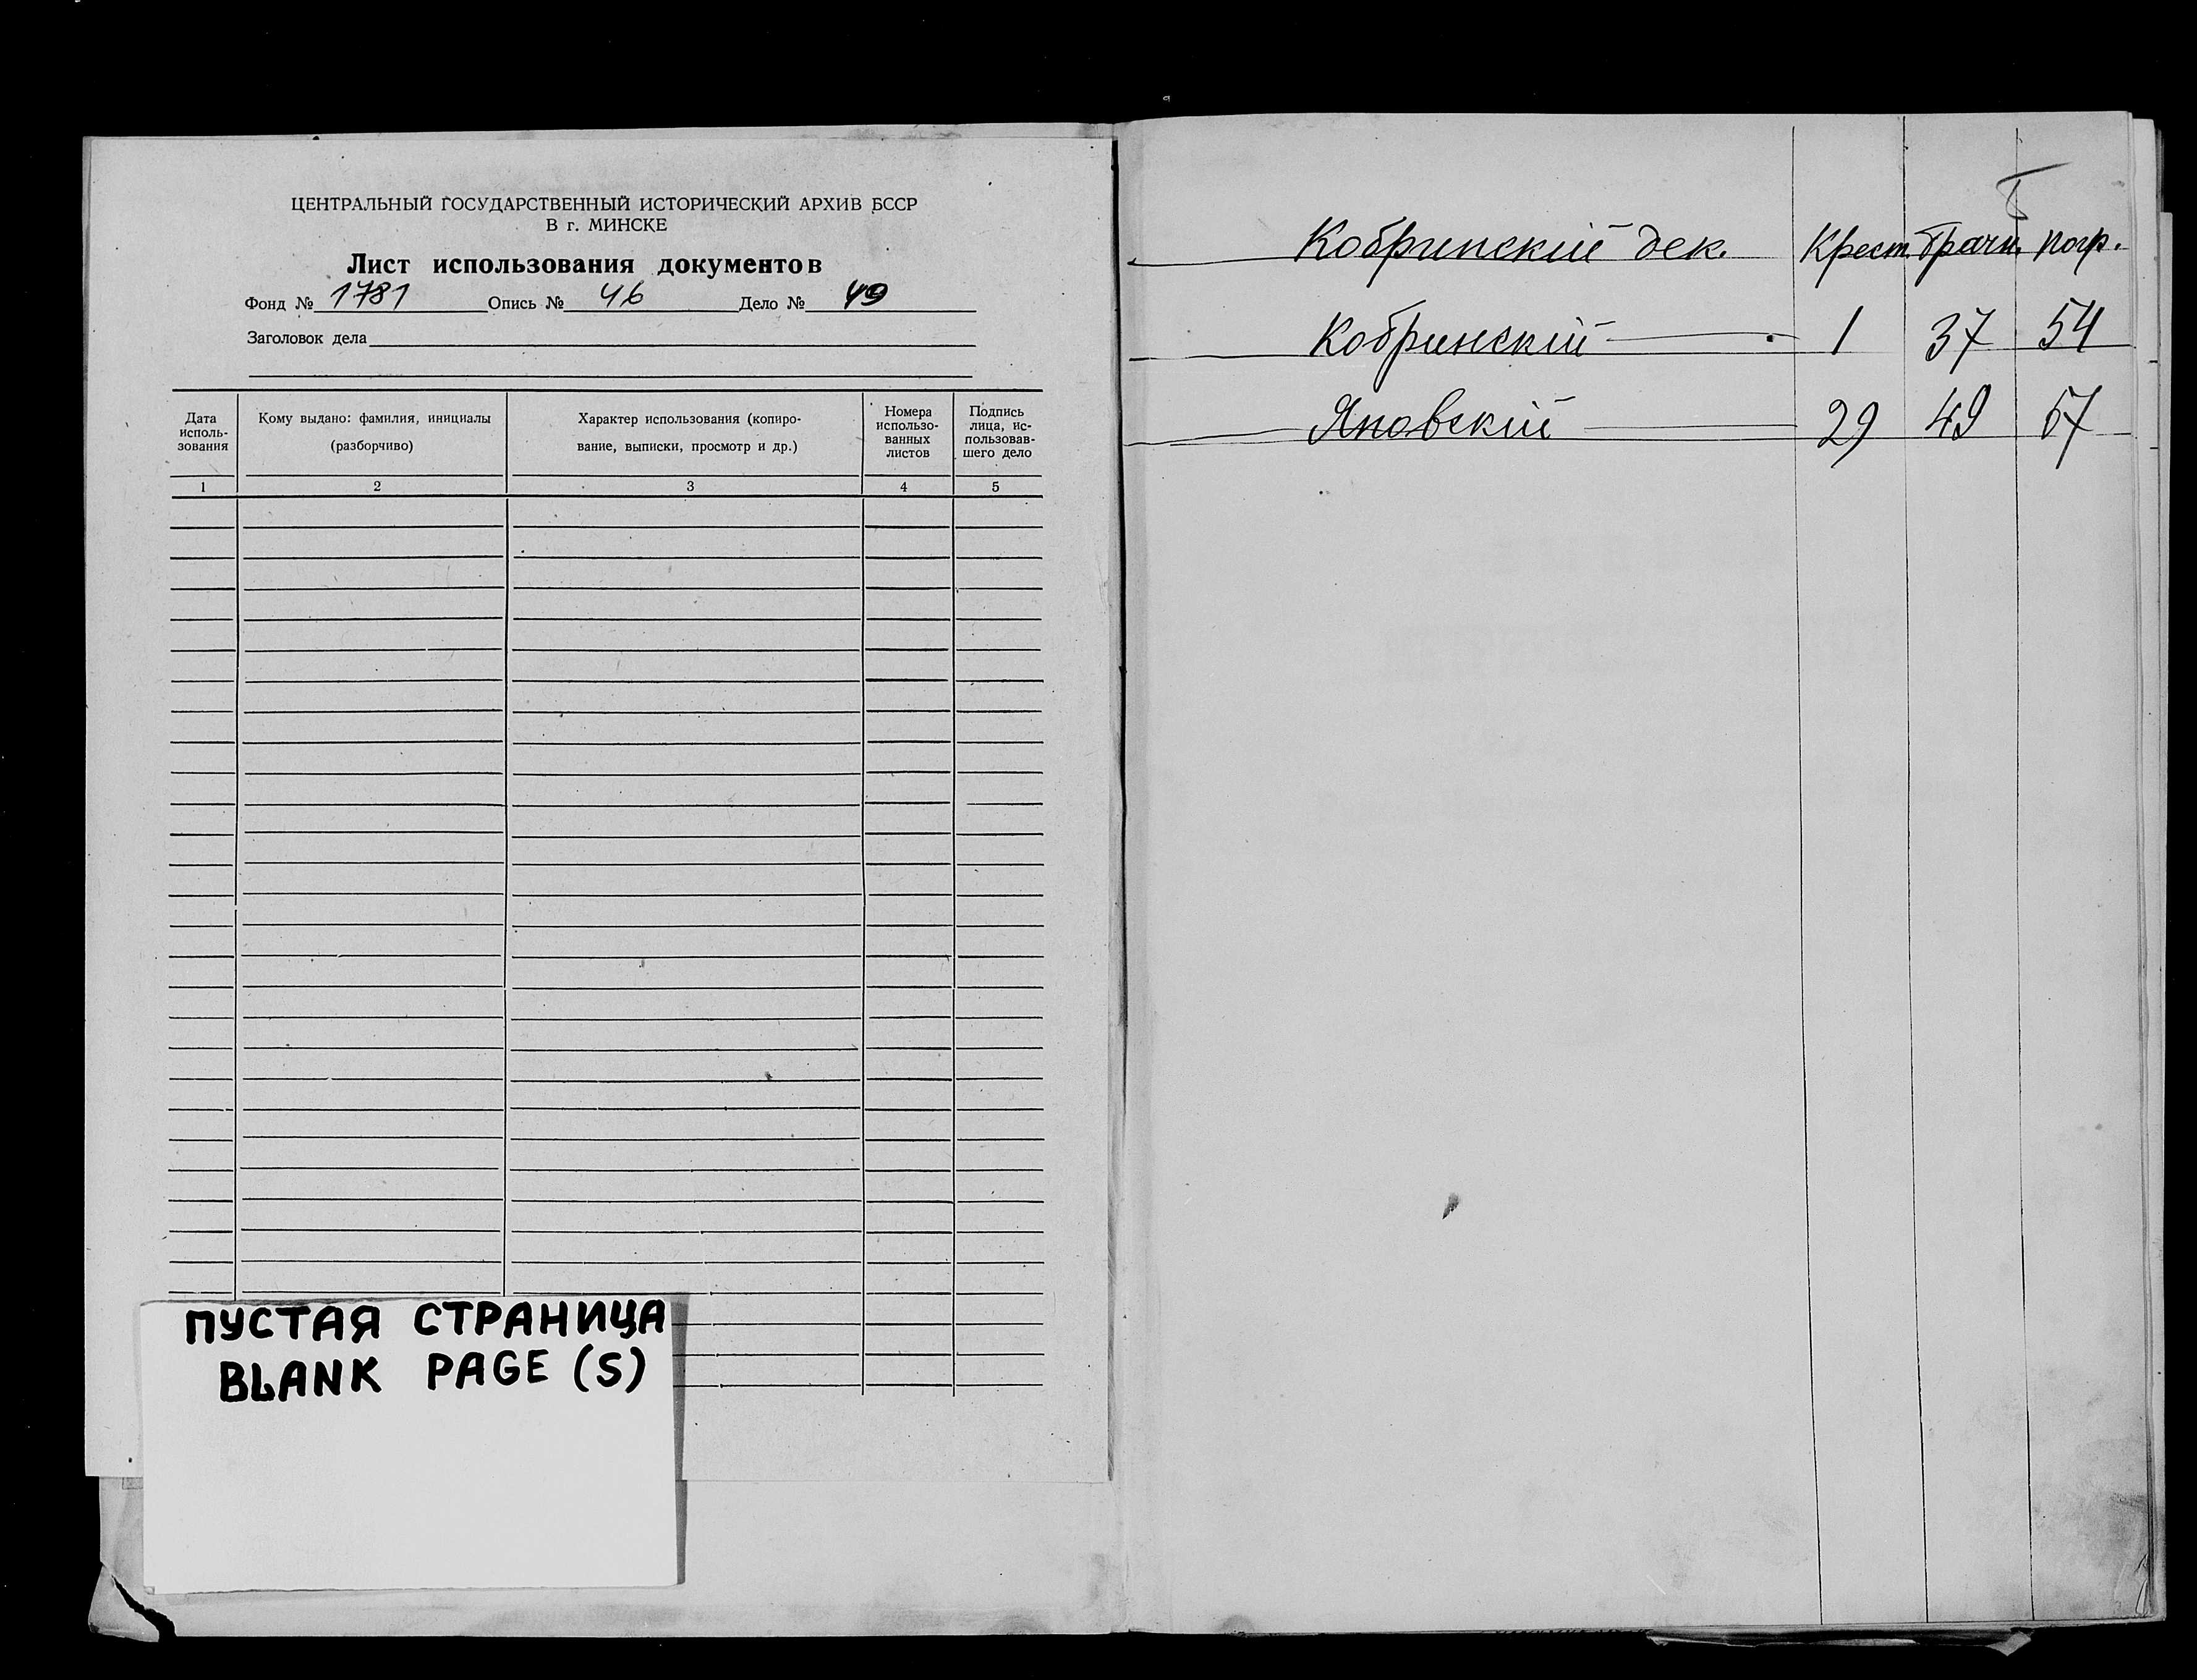 ЦЕНТРАЛЬНЫЙ ГОСУДАРСТВЕННЫЙ ИСТОРИЧЕСКИЙ АРХИВ БССР
В г. МИНСКЕ
Лист использования документов
Фонд № 1781 Опись № 46 Дело № 49
Заголовок дела
Дата исполь-
зования
Кому выдано: фамилия, инициалы
(разборчиво)
Характер использования (копиро-
вание, выписки, просмотр и др.)
Номера
использо-
ванных
листов
Подпись
лица, ис-
пользовав-
шего дело
1 2 3 4 5
ПУСТАЯ СТРАНИЦА
BLANK PAGE (S)
Кобринскій дек. Крест. брачн. погр.
Кобринскій 1 37 54
Яновскій 29 49 57